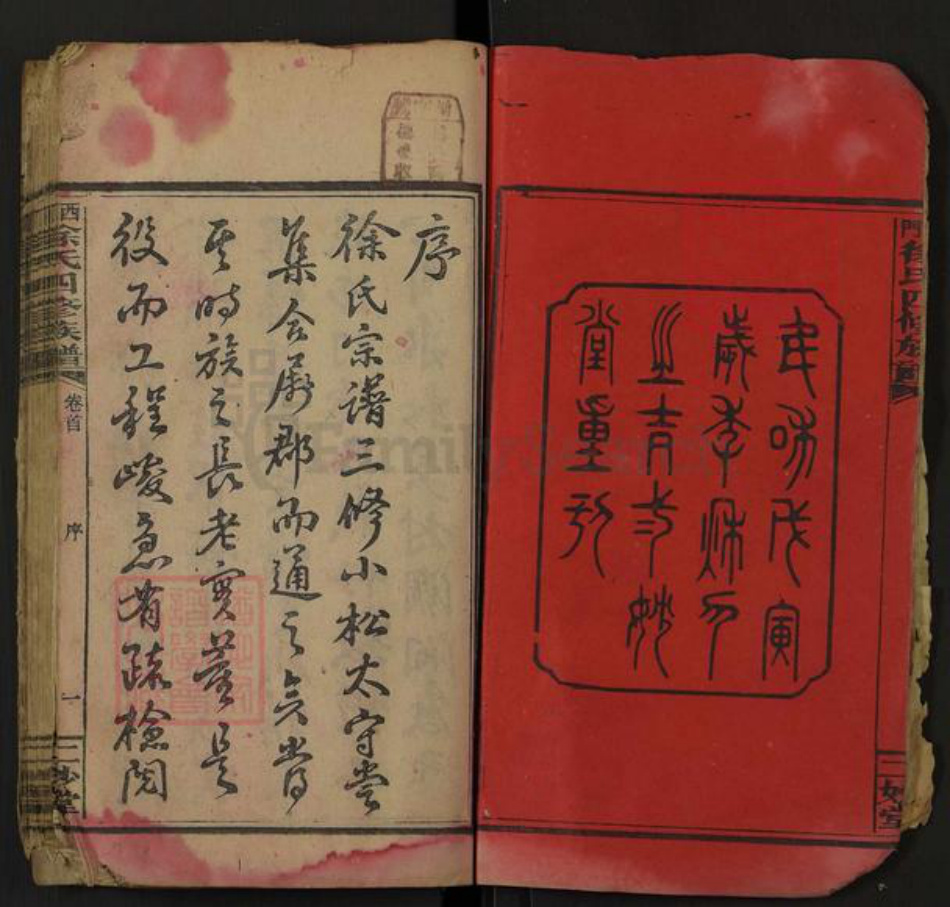 民國戊寅
歲季秌月
上吉式妙
堂重刊
門徐氏四修族譜
二妙堂
序
徐氏宗譜三修小松太守嘗
集合闔郡而通之矣當
其時族之長老實董是
役而工程峻急者疏檢閱
西徐氏四修族譜
卷首
序
一
二妙堂